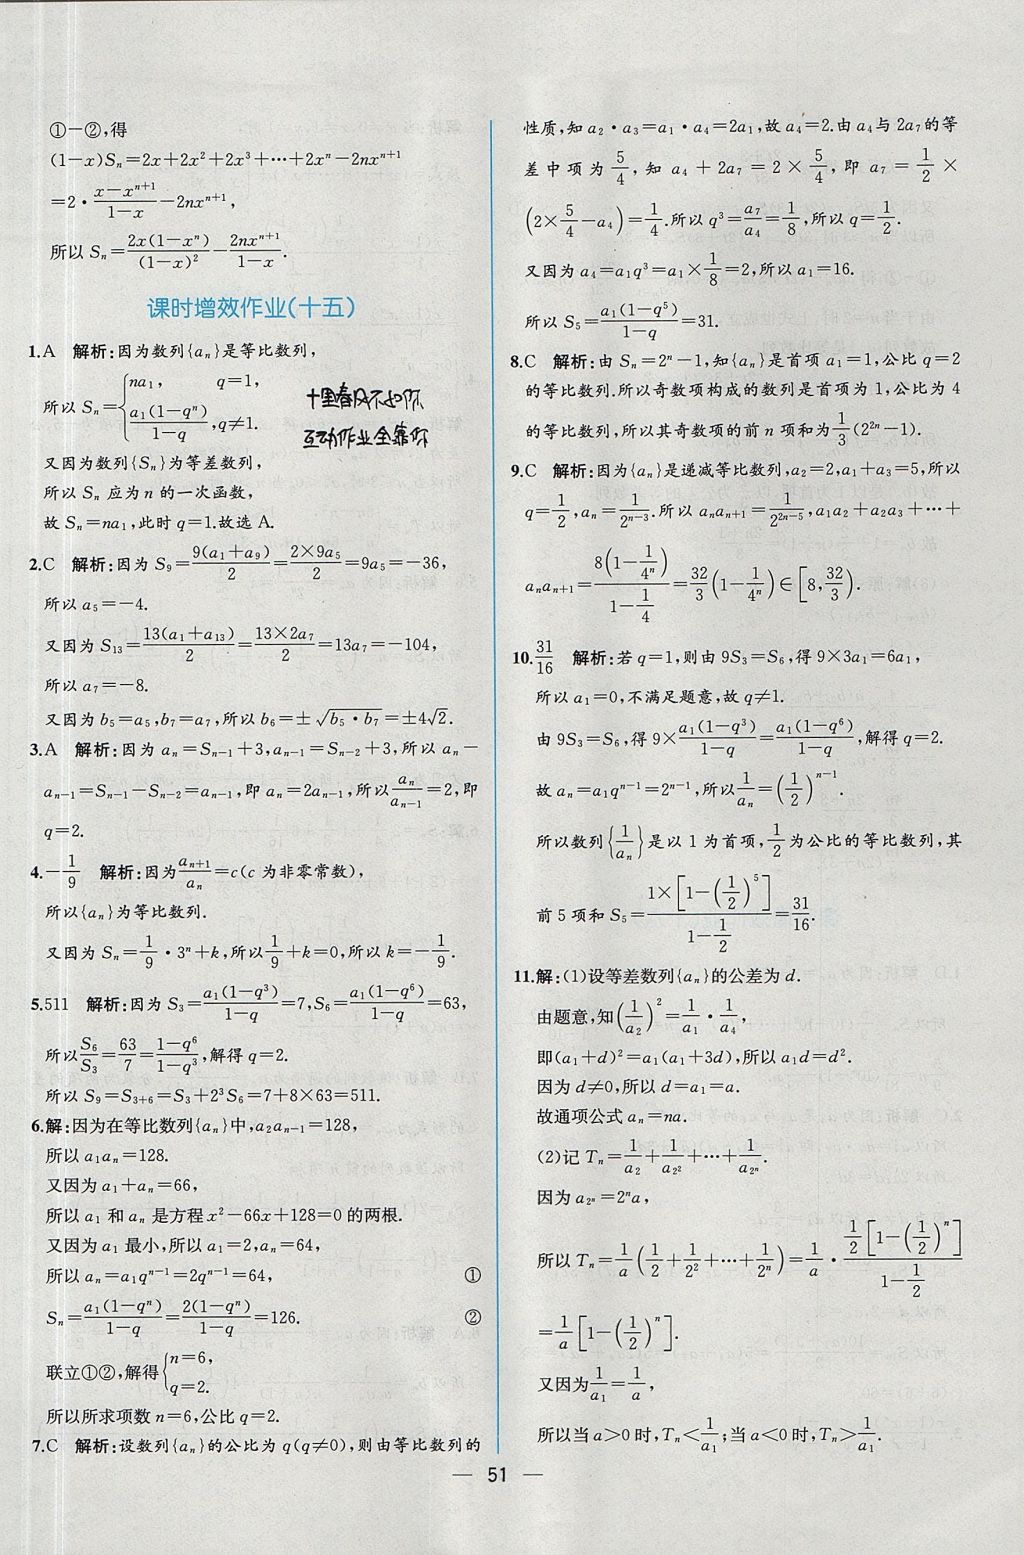 ①－②,得
(1－x)Sₙ＝2x＋2x²＋2x³＋⋯＋2xⁿ－2nxⁿ⁺¹
＝2·\frac{x－xⁿ⁺¹}{1－x}－2nxⁿ⁺¹,
所以 Sₙ＝\frac{2x(1－xⁿ)}{(1－x)²}－\frac{2nxⁿ⁺¹}{1－x}.
课时增效作业(十五)
1.A 解析:因为数列{aₙ}是等比数列,
所以 Sₙ＝\begin{cases} na₁, & q＝1, \\ \frac{a₁(1－qⁿ)}{1－q}, & q≠1. \end{cases}
十里春风不如你
互动作业全靠你
又因为数列{Sₙ}为等差数列,
所以 Sₙ 应为 n 的一次函数,
故 Sₙ＝na₁,此时 q＝1.故选 A.
2.C 解析:因为 S₉＝\frac{9(a₁＋a₉)}{2}＝\frac{2×9a₅}{2}＝9a₅＝－36,
所以 a₅＝－4.
又因为 S₁₃＝\frac{13(a₁＋a₁₃)}{2}＝\frac{13×2a₇}{2}＝13a₇＝－104,
所以 a₇＝－8.
又因为 b₅＝a₅,b₇＝a₇,所以 b₆＝±\sqrt{b₅·b₇}＝±4√2.
3.A 解析:因为 aₙ＝Sₙ₋₁＋3,aₙ₋₁＝Sₙ₋₂＋3,所以 aₙ－
aₙ₋₁＝Sₙ₋₁－Sₙ₋₂＝aₙ₋₁,即 aₙ＝2aₙ₋₁,所以\frac{aₙ}{aₙ₋₁}＝2,即
q＝2.
4.－\frac{1}{9} 解析:因为\frac{aₙ₊₁}{aₙ}＝c(c 为非零常数),
所以{aₙ}为等比数列.
又因为 Sₙ＝\frac{1}{9}·3ⁿ＋k,所以\frac{1}{9}＋k＝0,所以 k＝－\frac{1}{9}.
5.511 解析:因为 S₃＝\frac{a₁(1－q³)}{1－q}＝7,S₆＝\frac{a₁(1－q⁶)}{1－q}＝63,
所以\frac{S₆}{S₃}＝\frac{63}{7}＝\frac{1－q⁶}{1－q³},解得 q＝2.
所以 S₉＝S₃₊₆＝S₃＋2³S₆＝7＋8×63＝511.
6.解:因为在等比数列{aₙ}中,a₂aₙ₋₁＝128,
所以 a₁aₙ＝128.
又因为 a₁＋aₙ＝66,
所以 a₁ 和 aₙ 是方程 x²－66x＋128＝0 的两根.
又因为 a₁ 最小,所以 a₁＝2,aₙ＝64,
所以 aₙ＝a₁qⁿ⁻¹＝2qⁿ⁻¹＝64, ①
Sₙ＝\frac{a₁(1－qⁿ)}{1－q}＝\frac{2(1－qⁿ)}{1－q}＝126. ②
联立①②,解得\begin{cases} n＝6, \\ q＝2. \end{cases}
所以所求项数 n＝6,公比 q＝2.
7.C 解析:设数列{aₙ}的公比为 q(q≠0),则由等比数列的
性质,知 a₂·a₃＝a₁·a₄＝2a₁,故 a₄＝2.由 a₄与 2a₇的等
差中项为\frac{5}{4},知 a₄＋2a₇＝2×\frac{5}{4},即 a₇＝\frac{1}{2}×
(2×\frac{5}{4}－a₄)＝\frac{1}{4}.所以 q³＝\frac{a₇}{a₄}＝\frac{1}{8},所以 q＝\frac{1}{2}.
又因为 a₄＝a₁q³＝a₁×\frac{1}{8}＝2,所以 a₁＝16.
所以 S₅＝\frac{a₁(1－q⁵)}{1－q}＝31.
8.C 解析:由 Sₙ＝2ⁿ－1,知{aₙ}是首项 a₁＝1,公比 q＝2
的等比数列.所以奇数项构成的数列是首项为 1,公比为 4
的等比数列,所以其奇数项的前 n 项和为\frac{1}{3}(2²ⁿ－1).
9.C 解析:因为{aₙ}是递减等比数列,a₂＝2,a₁＋a₃＝5,所以
q＝\frac{1}{2},aₙ＝\frac{1}{2ⁿ⁻³}.所以 aₙaₙ₊₁＝\frac{1}{2²ⁿ⁻⁵},a₁a₂＋a₂a₃＋⋯＋
aₙaₙ₊₁＝\frac{8(1－\frac{1}{4ⁿ})}{1－\frac{1}{4}}＝\frac{32}{3}(1－\frac{1}{4ⁿ})∈[8,\frac{32}{3}).
10.\frac{31}{16} 解析:若 q＝1,则由 9S₃＝S₆,得 9×3a₁＝6a₁,
所以 a₁＝0,不满足题意,故 q≠1.
由 9S₃＝S₆,得 9×\frac{a₁(1－q³)}{1－q}＝\frac{a₁(1－q⁶)}{1－q},解得 q＝2.
故 aₙ＝a₁qⁿ⁻¹＝2ⁿ⁻¹,所以\frac{1}{aₙ}＝(\frac{1}{2})ⁿ⁻¹
所以数列{\frac{1}{aₙ}}是以 1 为首项,\frac{1}{2}为公比的等比数列,其
前 5 项和 S₅＝\frac{1×[1－(\frac{1}{2})⁵]}{1－\frac{1}{2}}＝\frac{31}{16}.
11.解:(1)设等差数列{aₙ}的公差为 d.
由题意,知(\frac{1}{a₂})²＝\frac{1}{a₁}·\frac{1}{a₄},
即(a₁＋d)²＝a₁(a₁＋3d),所以 a₁d＝d².
因为 d≠0,所以 d＝a₁＝a.
故通项公式 aₙ＝na.
(2)记 Tₙ＝\frac{1}{a₂}＋\frac{1}{a_{2²}}＋⋯＋\frac{1}{a_{2ⁿ}}.
因为 a_{2ⁿ}＝2ⁿa,
所以 Tₙ＝\frac{1}{a}(\frac{1}{2}＋\frac{1}{2²}＋⋯＋\frac{1}{2ⁿ})＝\frac{1}{a}·\frac{\frac{1}{2}[1－(\frac{1}{2})ⁿ]}{1－\frac{1}{2}}
＝\frac{1}{a}[1－(\frac{1}{2})ⁿ].
又因为\frac{1}{a₁}＝\frac{1}{a},
所以当 a＞0 时,Tₙ＜\frac{1}{a₁};当 a＜0 时,Tₙ＞\frac{1}{a₁}.
— 51 —